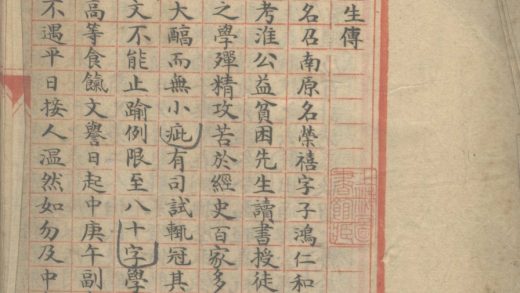 生傳
名召南原名榮禧字子鴻仁和
考淮公益貧困先生讀書授徒
之學殫精攻苦於經史百家多
大醇而無小疵有司試輒冠其
文不能止踰例限至八十字學
高等食餼文譽日起中庚午副
不遇平日接人溫然如勿及中